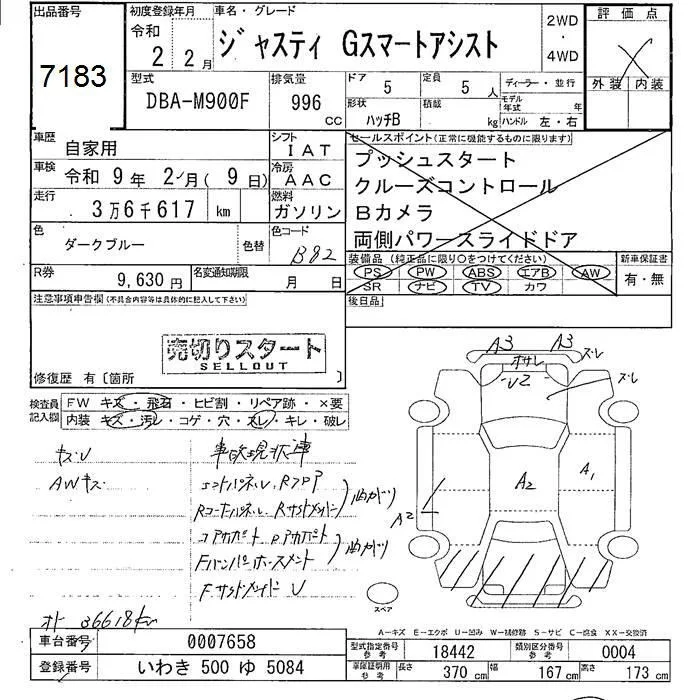 出品番号
7183
初度登録年月
令和
2 2月
車名・グレード
ジャスティ Gスマートアシスト
2WD
・
4WD
評価点
外装 内装
型式
DBA-M900F
排気量
996
cc
ドア 5
定員 5 人
形状 ハッチB
積載 kg
ディーラー・並行
モデル年式 年
ハンドル 左・右
車歴 自家用
シフト IAT
車検 令和 9年 2月(9日)
冷房 AAC
走行 3万6千617 km
燃料 ガソリン
色 ダークブルー 色替
色コード B82
R券 9,630 円
名変通知期限 月 日
セールスポイント(正常に機能するものに限ります)
プッシュスタート
クルーズコントロール
Bカメラ
両側パワースライドドア
装備品 (純正品に限り〇をつけてください)
PS PW ABS エアB AW
SR ナビ TV カワ
新車保証書
有・無
後日品
注意事項申告欄(不具合内容等は具体的に記入して下さい)
売切りスタート
SELLOUT
修復歴 有〔箇所
検査員記入欄
FW キズ・飛石・ヒビ割・リペア跡・×要
内装 キズ・汚レ・コゲ・穴・スレ・キレ・破レ
キズU
AWキズ
事故現状車
Fサイドメンバー U
オト 36618km
A3 A3 ズレ
オサレ
U2
ズレ
A2
A1
A2
スペア
A-キズ E-エクボ U-凹み W-補修跡 S-サビ C-腐食 XX-交換済
車台番号 0007658
登録番号 いわき 500 ゆ 5084
型式指定番号 参考 18442
類別区分番号 参考 0004
車庫証明用 参考 長さ 370 cm 幅 167 cm 高さ 173 cm